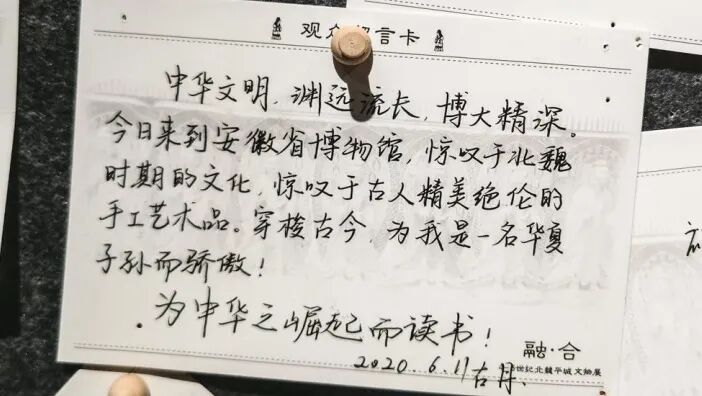 观众留言卡
中华文明，渊远流长，博大精深。
今日来到安徽省博物馆，惊叹于北魏
时期的文化，惊叹于古人精美绝伦的
手工艺术品。穿梭古今，为我是一名华夏
子孙而骄傲！
为中华之崛起而读书！
融·合
世纪北魏平城文物展
2020.6.11 古月.